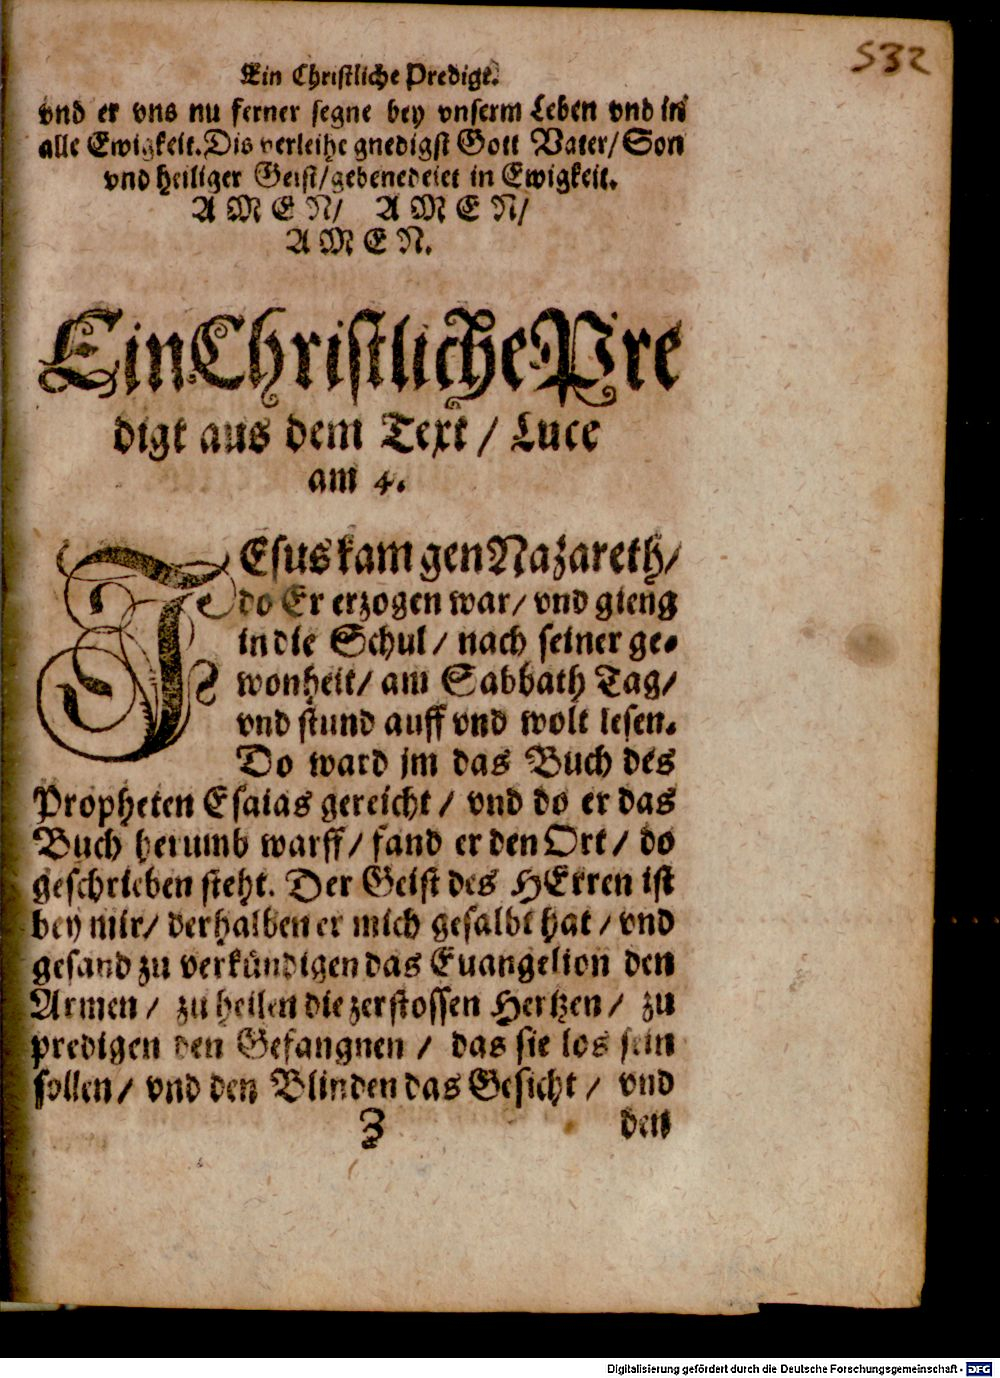 532
Ein Christliche Predigt.
vnd er vns nu ferner segne bey vnserm Leben vnd in
alle Ewigkeit. Dis verleihe gnedigst Gott Vater/ Son
vnd heiliger Geist/ gebenedeiet in Ewigkeit.
AMEN/ AMEN/
AMEN.
Ein Christliche Pre
digt aus dem Text / Luce
am 4.
JEsus kam gen Nazareth/
do Er erzogen war/ vnd gieng
in die Schul / nach seiner ge-
wonheit/ am Sabbath Tag/
vnd stund auff vnd wolt lesen.
Do ward jm das Buch des
Propheten Esaias gereicht / vnd do er das
Buch herumb warff/ fand er den Ort / do
geschrieben steht. Der Geist des HErren ist
bey mir/ derhalben er mich gesalbt hat / vnd
gesand zu verkündigen das Euangelion den
Armen / zu heilen die zerstossen Hertzen / zu
predigen den Gefangnen / das sie los sein
sollen / vnd den Blinden das Gesicht / vnd
Z den
Digitalisierung gefördert durch die Deutsche Forschungsgemeinschaft - DFG